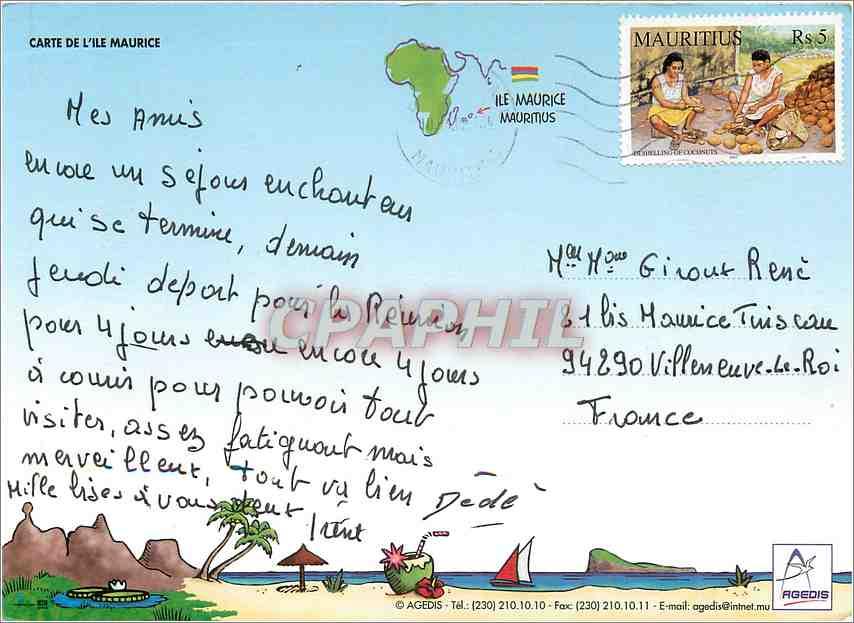 CARTE DE L'ILE MAURICE
ILE MAURICE
MAURITIUS
MAURITIUS Rs 5
DEHUELLING OF COCONUTS
Mes Amis
encore un séjour enchanteur
qui se termine, demain
Jeudi depart pour la Réunion
pour 4 jours encore 4 jours
à courir pour pouvoir tout
visiter, assez fatiguant mais
merveilleux, tout va bien Dédé
Mille bises à vous deux
Irène
Mr et Mme Giroux René
81 bis Maurice
94290 Villeneuve-Le-Roi
France
CPAPHIL
© AGEDIS - Tél.: (230) 210.10.10 - Fax: (230) 210.10.11 - E-mail: agedis@intnet.mu
AGEDIS